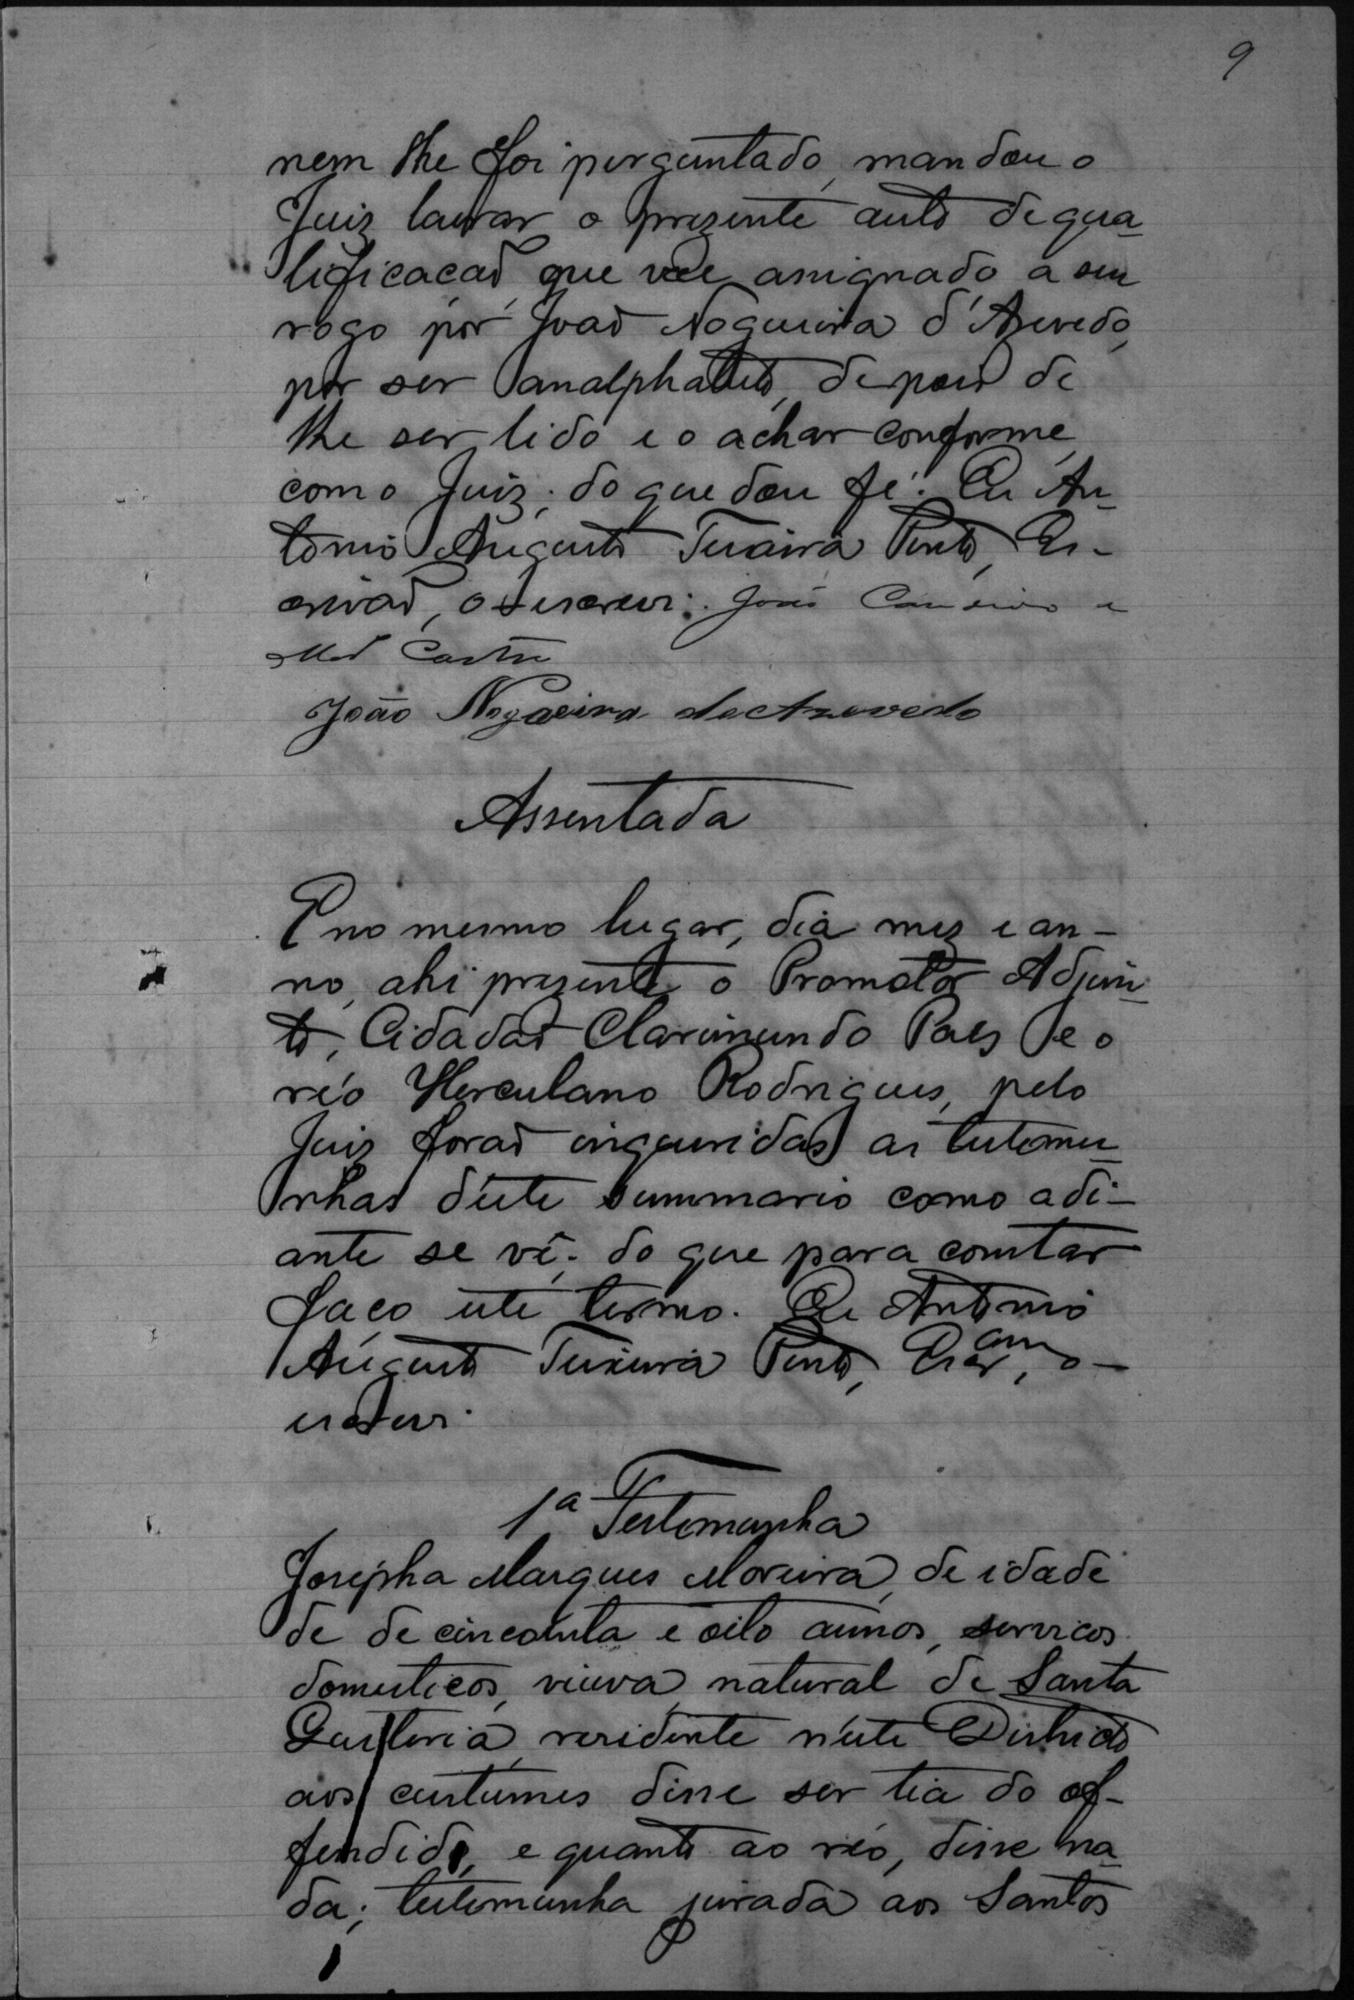 9
nem lhe foi perguntado, mandou o
Juiz lavrar o prezente auto de qua-
lificacaõ, que vae assignado a seu
rogo por Joaõ Nogueira d'Azevedo,
por ser analphabeto, depois de
lhe ser lido e o achar conforme,
com o Juiz; do que dou fé. Eu An-
tonio Augusto Teixeira Pinto, Es-
crivaõ, o escrevi.. João
Castro
João Nogueira de Azevedo
Assentada
E no mesmo lugar, dia mez e an-
no, ahi prezente o Promotor Adjun-
to, Cidadaõ Clarimundo Paes e o
réo Herculano Rodrigues, pelo
Juiz foraõ inqueridas as testemu-
nhas d'este summario como adi-
ante se vê; do que para constar
faço este termo. Eu Antonio
Augusto Teixeira Pinto, Escr.am, o-
escrevi.
1ª Testemunha
Josépha Marques Moreira, de idade
de de cincoenta e oito annos, servicos
domesticos, viuva, natural de Santa
Quiteria, residente n'este Districto
aos custumes disse ser tia do of-
fendido, e quanto ao réo, disse na-
da; testemunha jurada aos Santos